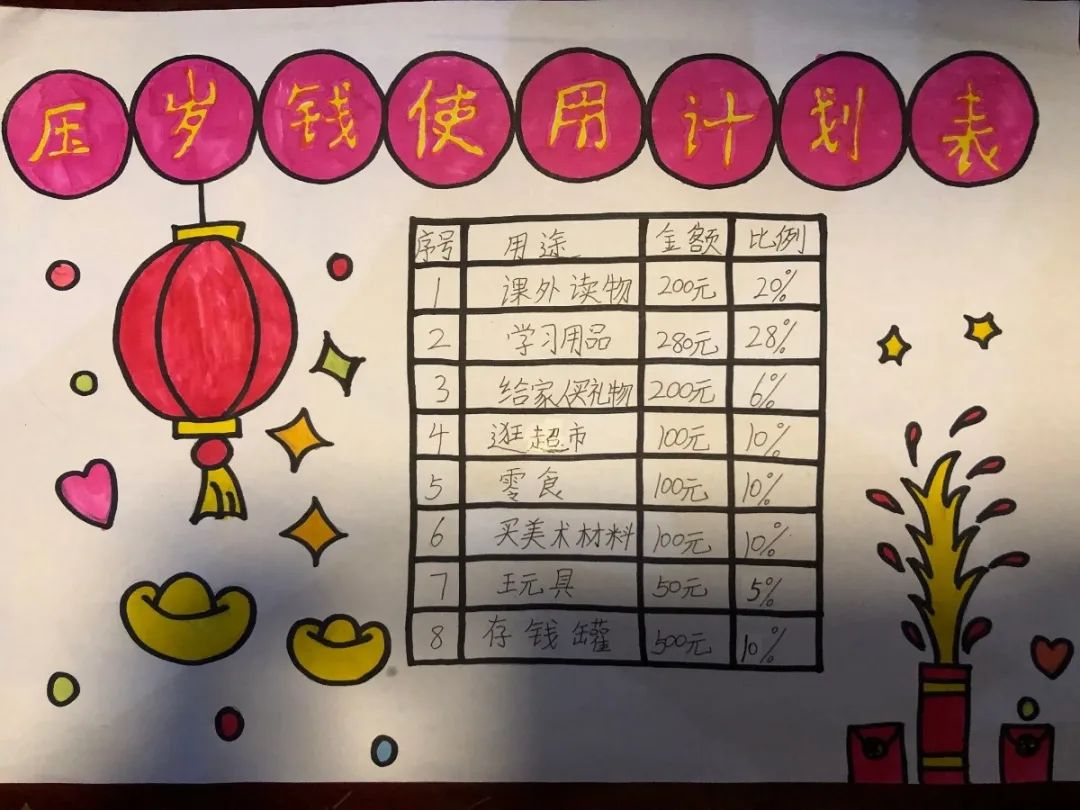 压岁钱使用计划表
序号 用途 金额 比例
1 课外读物 200元 20%
2 学习用品 280元 28%
3 给家人买礼物 200元 6%
4 逛超市 100元 10%
5 零食 100元 10%
6 买美术材料 100元 10%
7 玩具 50元 5%
8 存钱罐 500元 10%